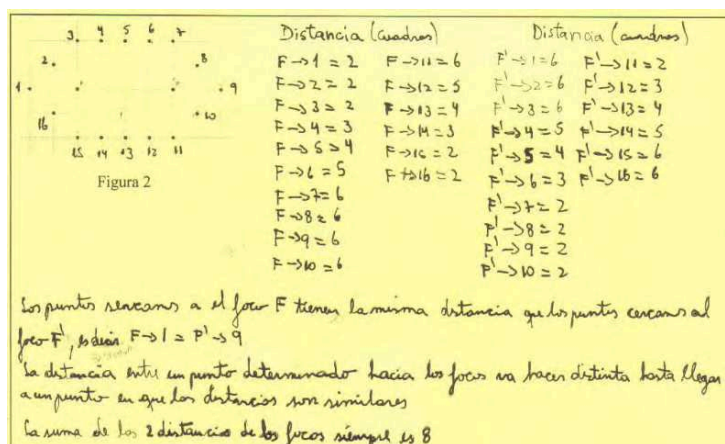 3 4 5 6 7
2 8
1 9
16 10
15 14 13 12 11
Figura 2
Distancia (cuadros)
F→1=2 F→11=6
F→2=2 F→12=5
F→3=2 F→13=4
F→4=3 F→14=3
F→5=4 F→15=2
F→6=5 F→16=2
F→7=6
F→8=6
F→9=6
F→10=6
Distancia (cuadros)
F'→1=6 F'→11=2
F'→2=6 F'→12=3
F'→3=6 F'→13=4
F'→4=5 F'→14=5
F'→5=4 F'→15=6
F'→6=3 F'→16=6
F'→7=2
F'→8=2
F'→9=2
F'→10=2
Los puntos sercanos a el foco F tienen la misma distancia que los puntos cercanos al
foco F', es decir F→1 = F'→9
La distancia entre un punto determinado hacia los focos va hacer distinta hasta llegar
a un punto en que las distancias son similares
La suma de las 2 distancias de los focos siempre es 8